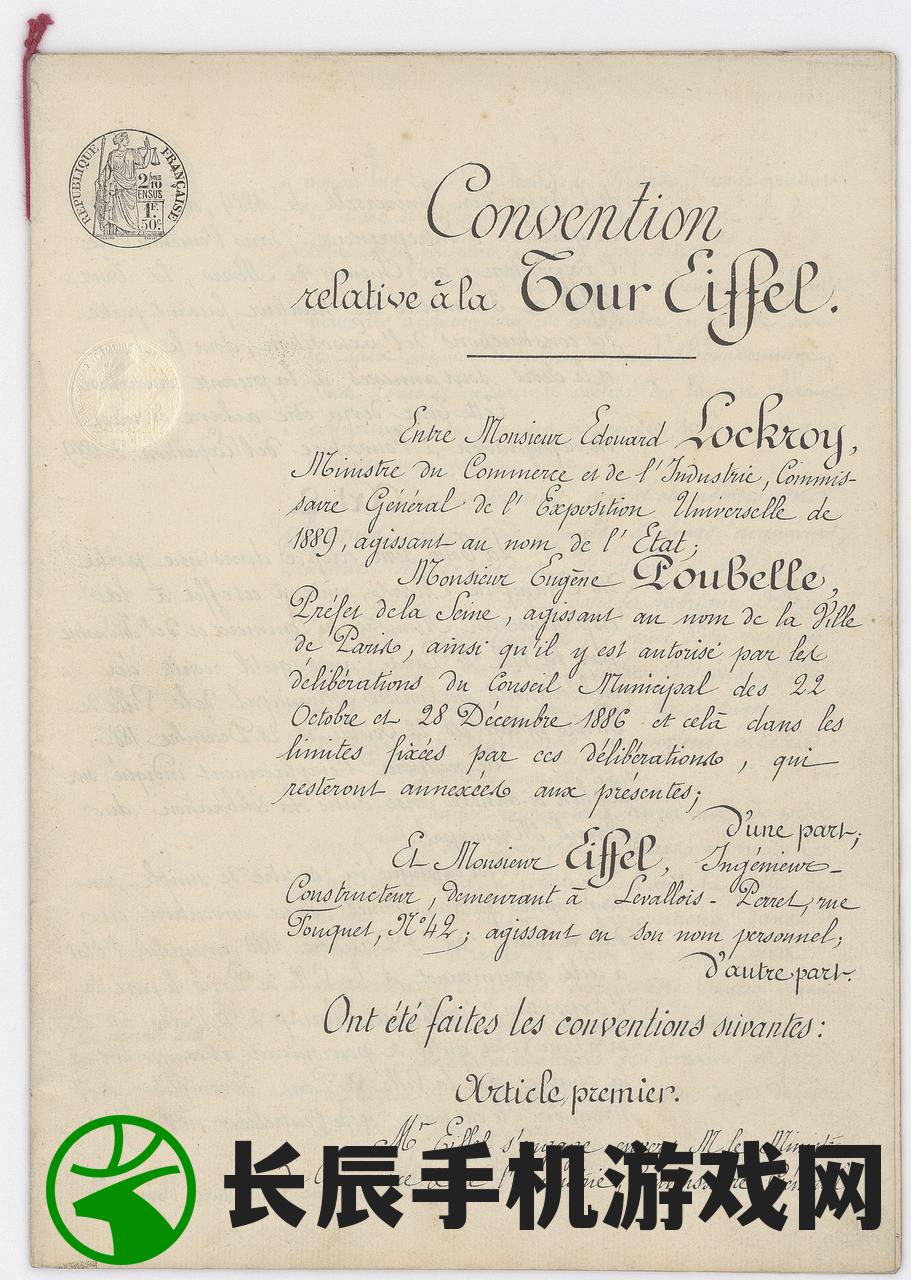 RÉPUBLIQUE FRANÇAISE
2/10
EN SUS
1F.
50c
Convention
relative à la Tour Eiffel.
Entre Monsieur Edouard Lockroy,
Ministre du Commerce et de l'Industrie, Commis-
saire Général de l'Exposition Universelle de
1889, agissant au nom de l'Etat;
Monsieur Eugène Poubelle,
Préfet de la Seine, agissant au nom de la Ville
de Paris, ainsi qu'il y est autorisé par les
délibérations du Conseil Municipal des 22
Octobre et 28 Décembre 1886 et celà dans les
limites fixées par ces délibérations, qui
resteront annexées aux présentes;
D'une part;
Et Monsieur Eiffel, Ingénieur-
Constructeur, demeurant à Levallois-Perret, rue
Fouquet, N°42; agissant en son nom personnel;
D'autre part.
Ont été faites les conventions suivantes:
Article premier.
Mr Eiffel s'engage envers M. le Ministre
长辰手机游戏网